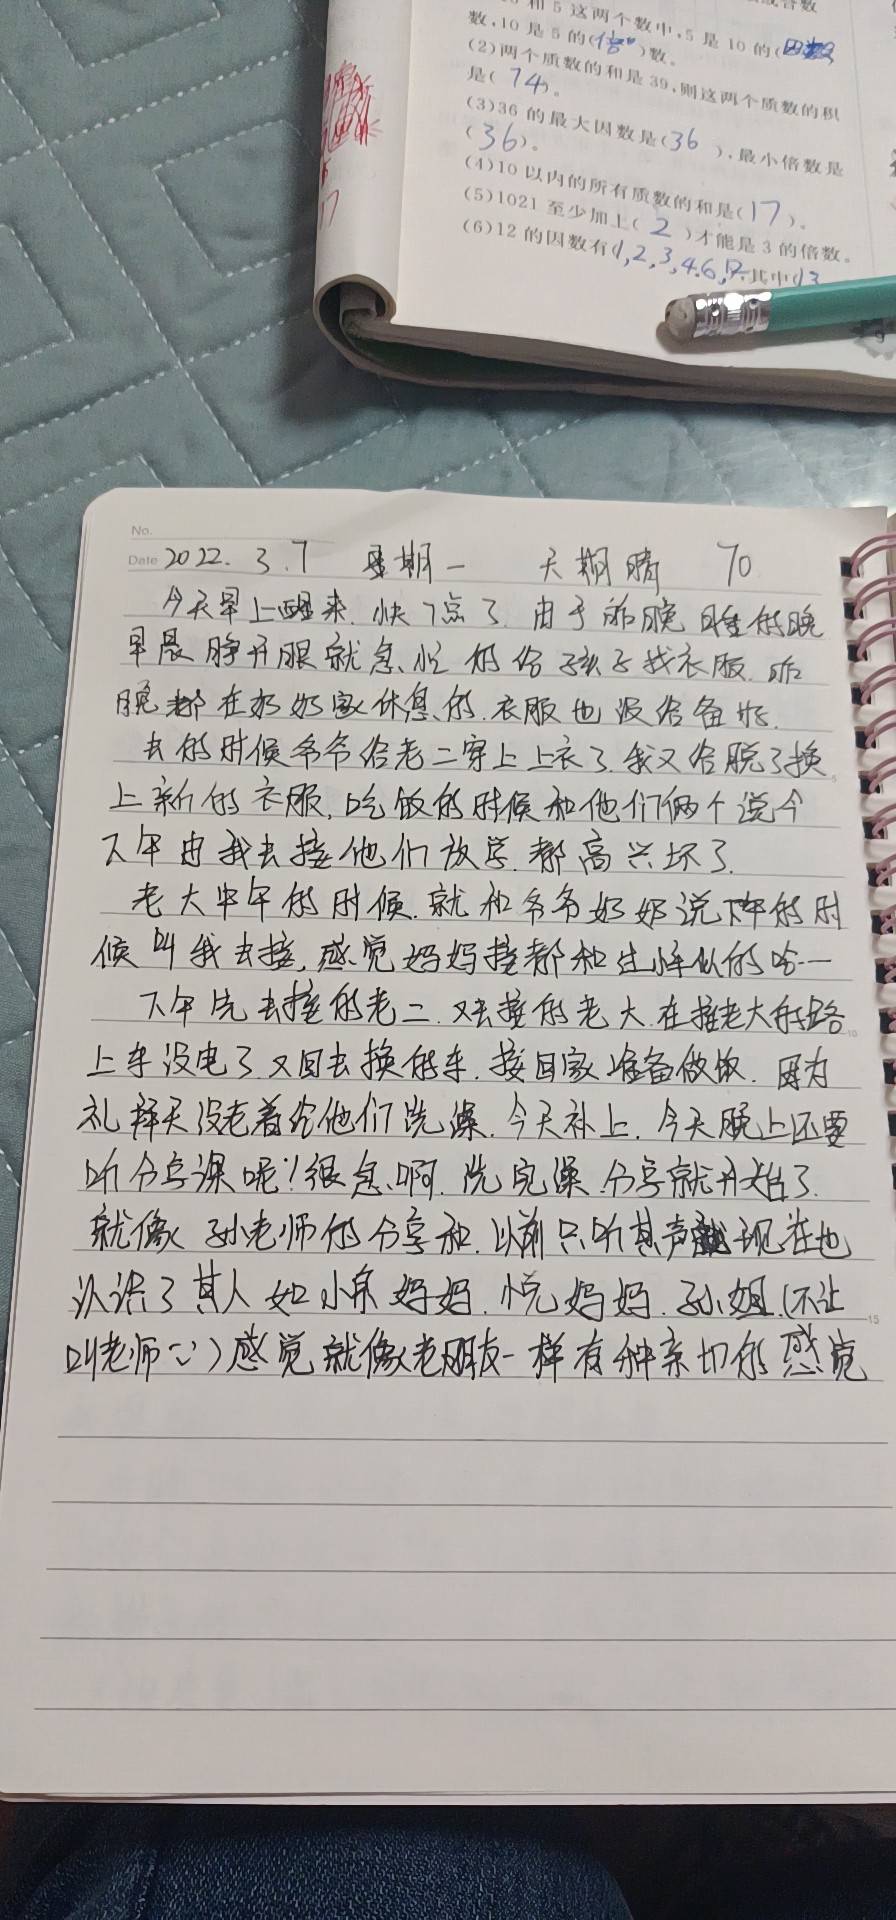 和5这两个数中,5是10的(因数
数,10是5的(倍)数。
(2)两个质数的和是39,则这两个质数的积
是(74)。
(3)36的最大因数是(36),最小倍数是
(36)。
(4)10以内的所有质数的和是(17)。
(5)1021至少加上(2)才能是3的倍数。
(6)12的因数有(1,2,3,4.6,12.其中(13
9
No.
Date 2022.3.7 星期一 天期晴 70
今天早上醒来.快7点了.由于昨晚睡的晚
早晨睁开眼就急忙的给孩子找衣服.昨
晚都在奶奶家休息的.衣服也没给备好.
去的时候爷爷给老二穿上上衣了.我又给脱了换
上新的衣服,吃饭的时候和他们俩个说今
下午由我去接他们放学.都高兴坏了.
老大中午的时候.就和爷爷奶奶说下午的时
候叫我去接,感觉妈妈接都和过年似的哈一
下午先去接的老二.又去接的老大.在接老大的路
上车没电了.又回去换的车.接回家准备做饭.因为
礼拜天没老着给他们洗澡.今天补上.今天晚上还要
听分享课呢!很急啊.洗完澡.分享就开始了.
就像孙老师的分享和.以前只听其声现在也
认识了其人如小泉妈妈.悦妈妈.孙姐.(不让
叫老师∵)感觉就像老朋友一样有种亲切的感觉